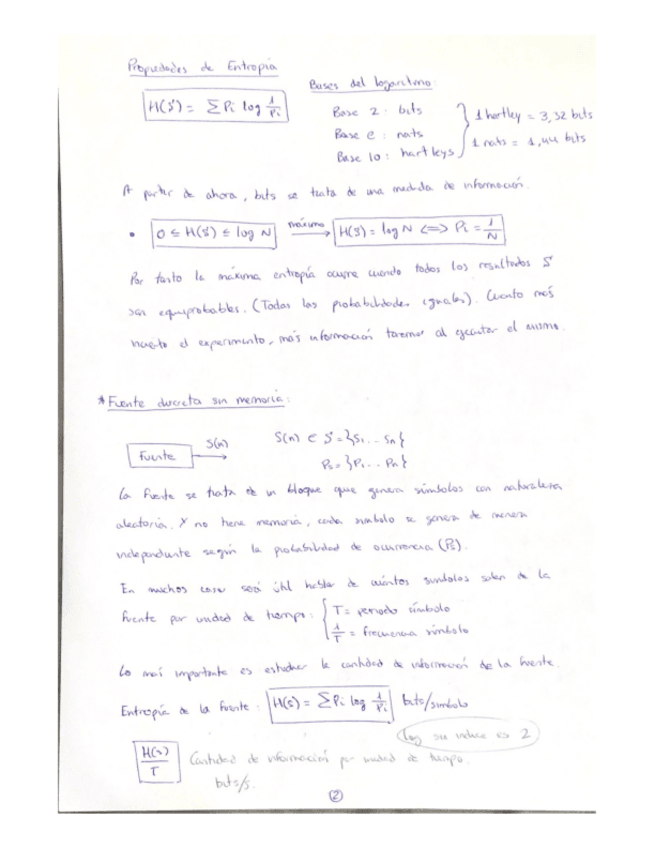 Propiedades de Entropía
H(S) = ∑ Pi log 1/Pi
Bases del logaritmo:
Base 2: bits
Base e: nats
Base 10: hartleys
1 hartley = 3,32 bits
1 nats = 1,44 bits
A partir de ahora, bits se trata de una medida de información.
• 0 ≤ H(S) ≤ log N máximo → H(S) = log N <=> Pi = 1/N
Por tanto la máxima entropía ocurre cuando todos los resultados S
son equiprobables. (Todas las probabilidades iguales). Cuanto más
incierto el experimento, más información tenemos al ejecutar el mismo.
* Fuente discreta sin memoria:
Fuente S(n) →
S(n) ∈ S = {S1 ... Sn}
Ps = {P1 ... Pn}
La fuente se trata de un bloque que genera símbolos con naturaleza
aleatoria. Y no tiene memoria, cada símbolo se genera de manera
independiente según la probabilidad de ocurrencia (Ps).
En muchos casos será útil hablar de cuántos símbolos salen de la
fuente por unidad de tiempo: { T = periodo símbolo
1/T = frecuencia símbolo
Lo más importante es estudiar la cantidad de información de la fuente.
Entropía de la fuente: H(s) = ∑ Pi log 1/Pi bits/símbolo
log sin índice es 2
H(s)/T Cantidad de información por unidad de tiempo.
bits/s.
2